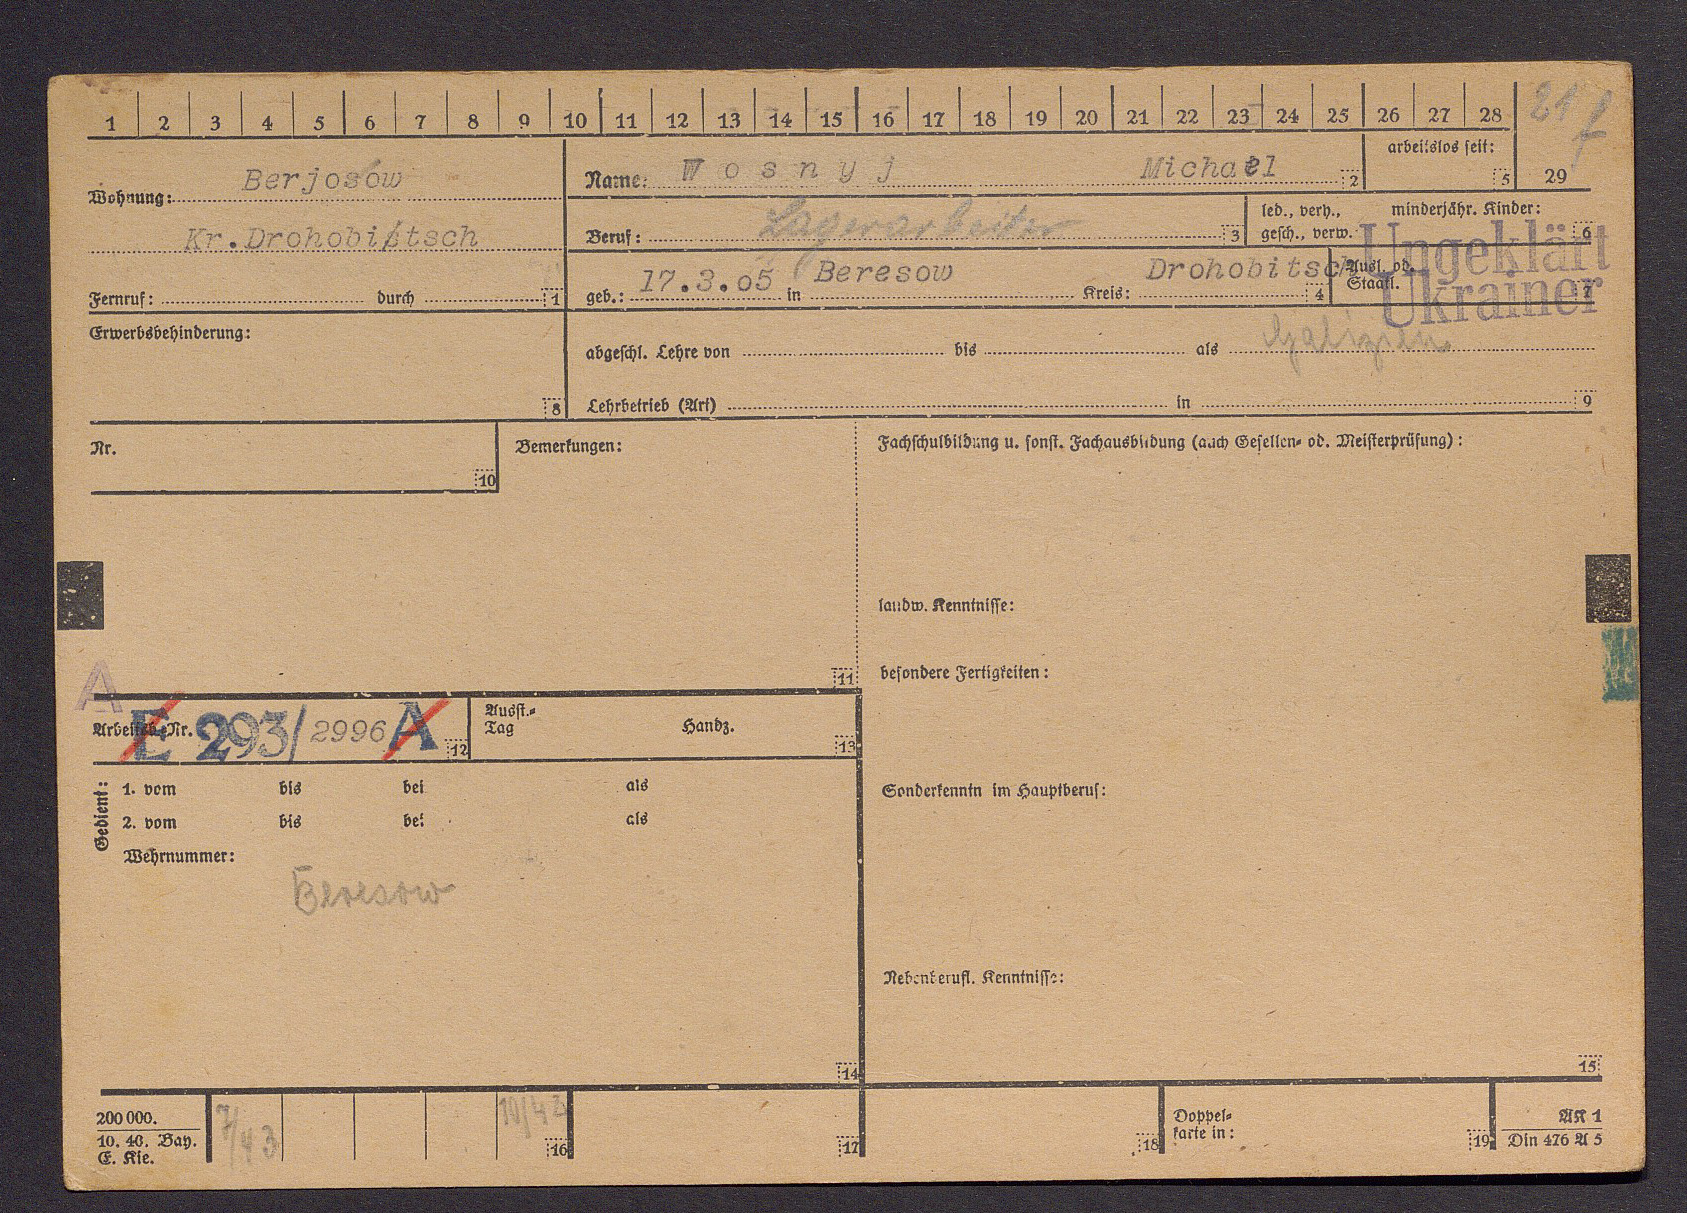 1 2 3 4 5 6 7 8 9 10 11 12 13 14 15 16 17 18 19 20 21 22 23 24 25 26 27 28 29
21
arbeitslos seit: 5
Wohnung: Berjosow
Kr. Drohobitsch
Fernruf: durch 1
Name: Wosnyj Michael 2
Beruf: Lagerarbeiter 3
led., verh., gesch., verw. minderjähr. Kinder: 6
geb.: 17.3.05 in Beresow Kreis: Drohobitsch 4
Ausl. od. Staatl. 7
Ungeklärt
Ukrainer
Galizien
Erwerbsbehinderung: 8
abgeschl. Lehre von bis als
Lehrbetrieb (Art) in 9
Nr. 10
Bemerkungen: 11
Fachschulbildung u. sonst. Fachausbildung (auch Gesellen- od. Meisterprüfung):
landw. Kenntnisse:
besondere Fertigkeiten:
Sonderkenntn im Hauptberuf:
Nebenberufl. Kenntnisse:
15
A
Arbeitsb.-Nr. E 293/2996 A 12
Ausst.-Tag Handz. 13
Gedient:
1. vom bis bei als
2. vom bis bei als
Wehrnummer:
Beresow
14
200 000.
10. 40. Bay.
E. Kie.
7/43
10/42
16
17
18
Doppelkarte in: 19
AK 1
Din 476 A 5